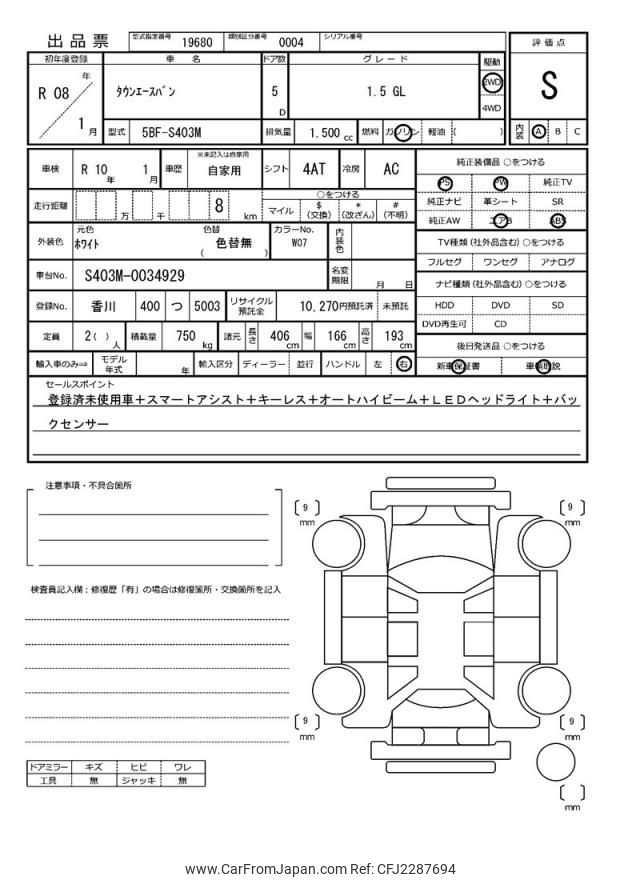 出品票 型式指定番号 19680 類別区分番号 0004 シリアル番号
初年度登録 車名 ドア数 グレード 駆動 評価点
R 08 年 1 月 タウンエースバン 5 D 1.5 GL 2WD 4WD S
型式 5BF-S403M 排気量 1.500 cc 燃料 ガソリン 軽油 ( ) 内装 A B C
車検 R 10 年 1 月 車歴 ※未記入は自家用 自家用 シフト 4AT 冷房 AC 純正装備品 ○をつける
PS PW 純正TV
走行距離 万 千 8 km ○をつける
マイル $(交換) *(改ざん) #(不明)
純正ナビ 革シート SR
純正AW エアB ABS
外装色 元色 ホワイト 色替 色替無 ( ) カラーNo. W07 内装色
TV種類(社外品含む)○をつける
フルセグ ワンセグ アナログ
車台No. S403M-0034929 名変期限 月 日
ナビ種類(社外品含む)○をつける
登録No. 香川 400 つ 5003 リサイクル預託金 10,270円預託済 未預託
HDD DVD SD
DVD再生可 CD
定員 2( ) 人 積載量 750 kg 諸元 長さ 406 cm 幅 166 cm 高さ 193 cm
後日発送品 ○をつける
輸入車のみ⇒ モデル年式 年 輸入区分 ディーラー 並行 ハンドル 左 右
新車保証書 車輌取説
セールスポイント
登録済未使用車+スマートアシスト+キーレス+オートハイビーム+LEDヘッドライト+バッ
クセンサー
注意事項・不具合箇所
[ 9 ] mm [ 9 ] mm
検査員記入欄:修復歴「有」の場合は修復箇所・交換箇所を記入
[ 9 ] mm [ 9 ] mm
ドアミラー キズ ヒビ ワレ
工具 無 ジャッキ 無
[ ] mm
www.CarFromJapan.com Ref: CFJ2287694